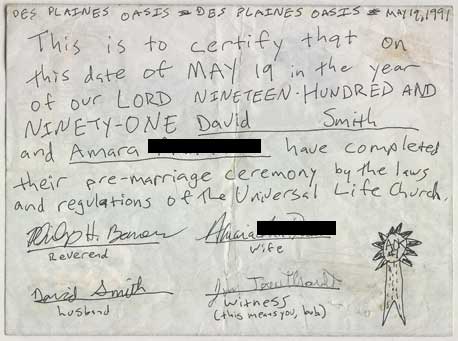 DES PLAINES OASIS * DES PLAINES OASIS * MAY 19, 1991
This is to certify that on
this date of MAY 19 in the year
of our LORD NINETEEN-HUNDRED AND
NINETY-ONE David Smith
and Amara have completed
their pre-marriage ceremony by the laws
and regulations of the Universal Life Church.
Philip H. Amara
Reverend Wife
David Smith
husband Witness
(this means you, bub)